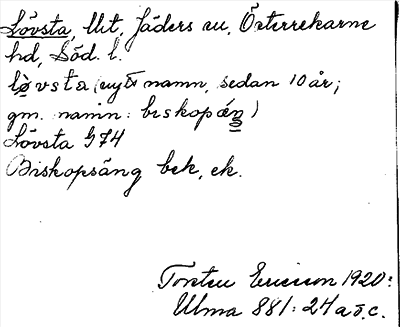 Lövsta, Utt. Jäders sn, Österrekarne
hd, Söd. l.
lø̀vsta (nytt namn, sedan 10 år;
gm. namn: biskopáŋ)
Lövsta G74
Biskopsäng bek, ek.
Torsten Ericsson 1920:
Ulma 881: 24 a ö. c.